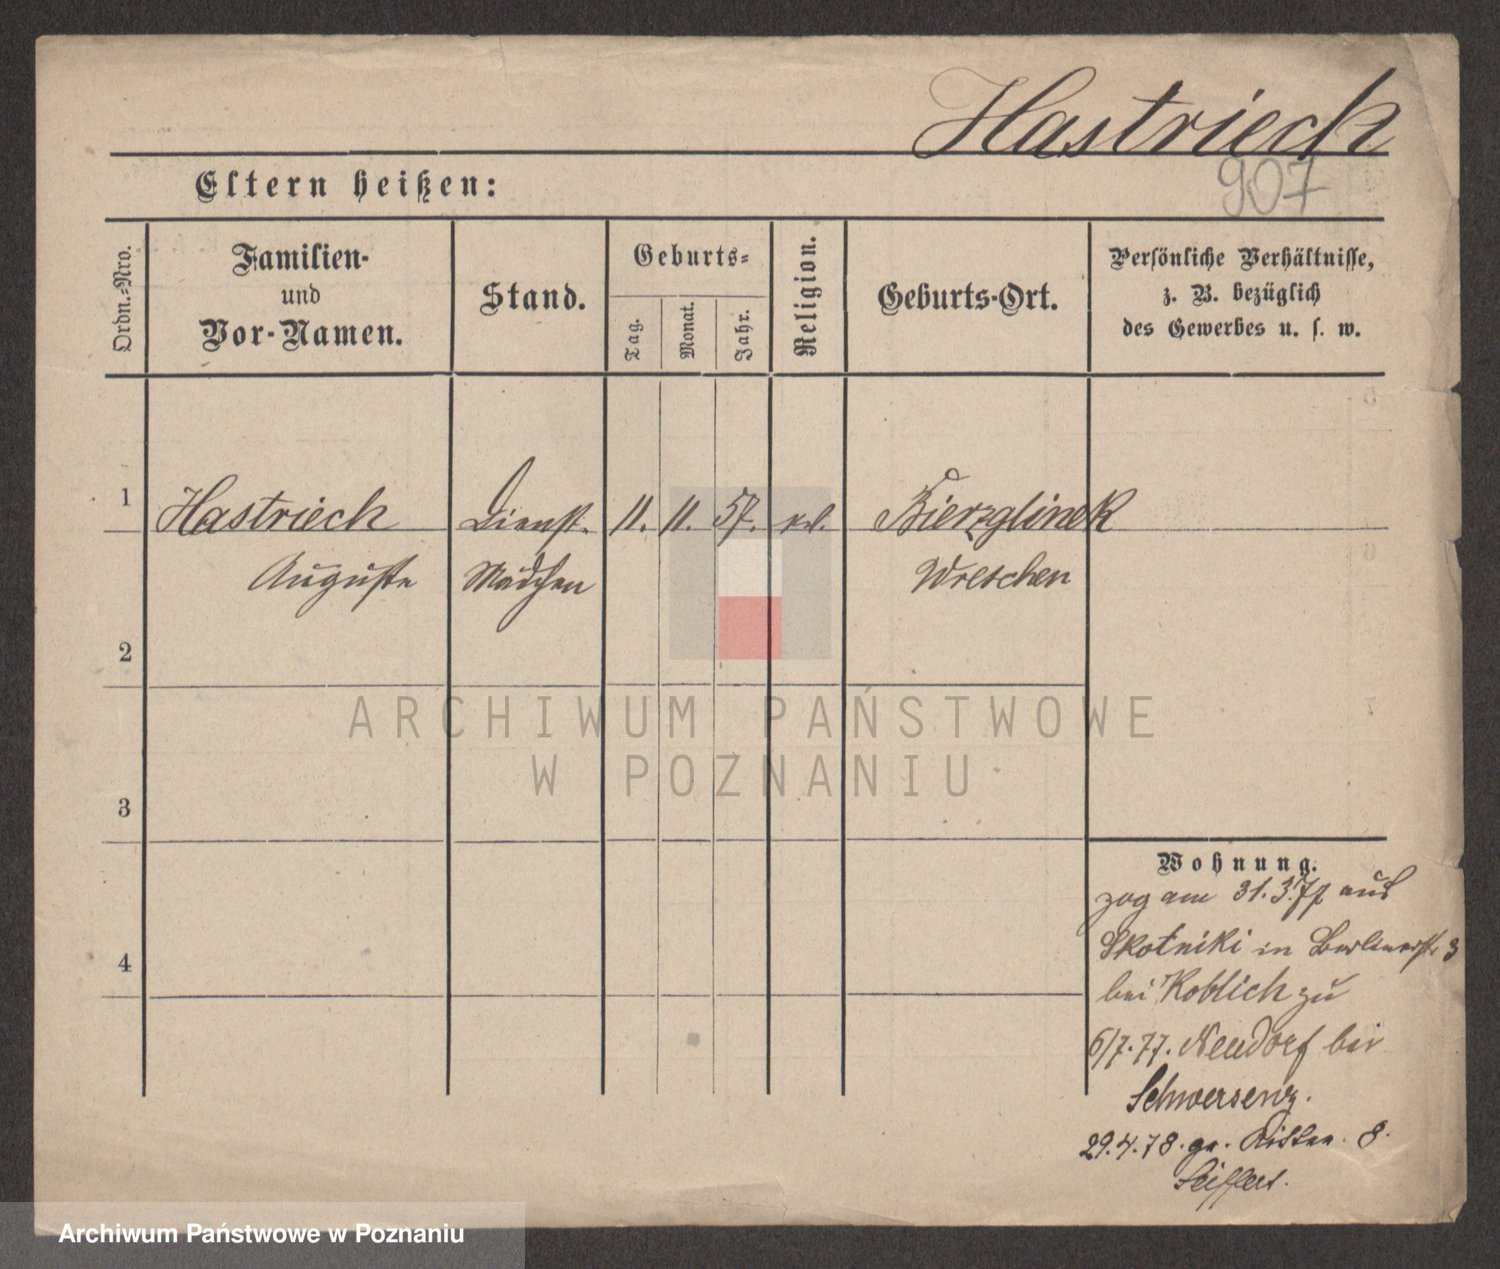 Hastrieck
907
Eltern heißen:
Ordn.-Nro.
Familien-
und
Vor-Namen.
Stand.
Geburts-
Tag.
Monat.
Jahr.
Religion.
Geburts-Ort.
Persönliche Verhältnisse,
z. B. bezüglich
des Gewerbes u. s. w.
1
Hastrieck Dienst- 11. 11. 57. Bierzglinek
Auguste Mädchen Wreschen
2
3
4
Wohnung.
zog am 31.3.77 aus
Skotniki in Berlinerstr 3
bei Koblich zu
6/7.77. Neudorf bei
Schwersenz.
29.4.78. gr. Ritter 8.
Seiffert.
ARCHIWUM PAŃSTWOWE
W POZNANIU
Archiwum Państwowe w Poznaniu